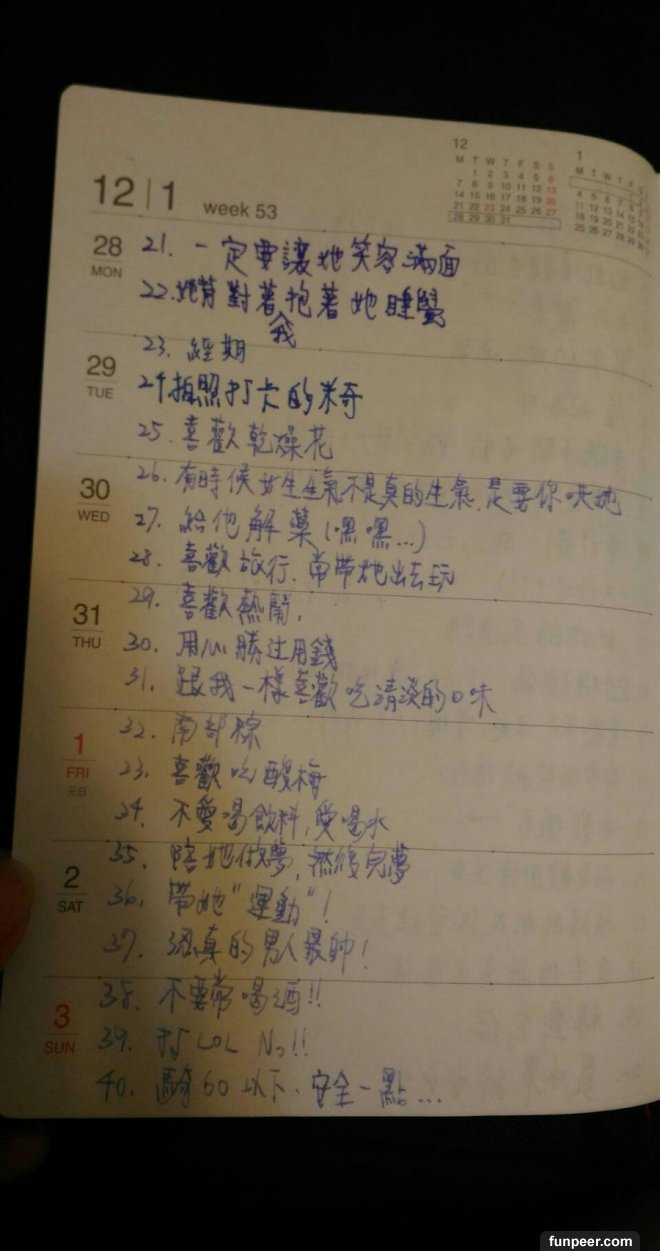 12|1 week 53
12
M T W T F S S
1 2 3 4 5 6
7 8 9 10 11 12 13
14 15 16 17 18 19 20
21 22 23 24 25 26 27
28 29 30 31
1
M T W T F
4 5 6 7 8
11 12 13 14 15
18 19 20 21 22
25 26 27 28 29
28 MON
21. 一定要讓她笑容滿面
22. 她背對著抱著她睡覺
我
23. 經期
29 TUE
24 拍照打卡的米奇
25. 喜歡乾燥花
30 WED
26. 有時候女生生氣不是真的生氣,是要你哄她
27. 給他解藥(嘿嘿...)
28. 喜歡旅行,常帶她出去玩
31 THU
29. 喜歡熱鬧.
30. 用心勝过用錢
31. 跟我一樣喜歡吃清淡的口味
1 FRI 元日
32. 南部粽
23. 喜歡吃酸梅
24. 不愛喝飲料,愛喝水
2 SAT
35. 陪她做夢,然後完夢
36. 帶她"運動"!
37. 認真的男人最帥!
3 SUN
38. 不要常喝酒!!
39. 打 LOL No!!
40. 騎 60 以下.安全一點...
funpeer.com